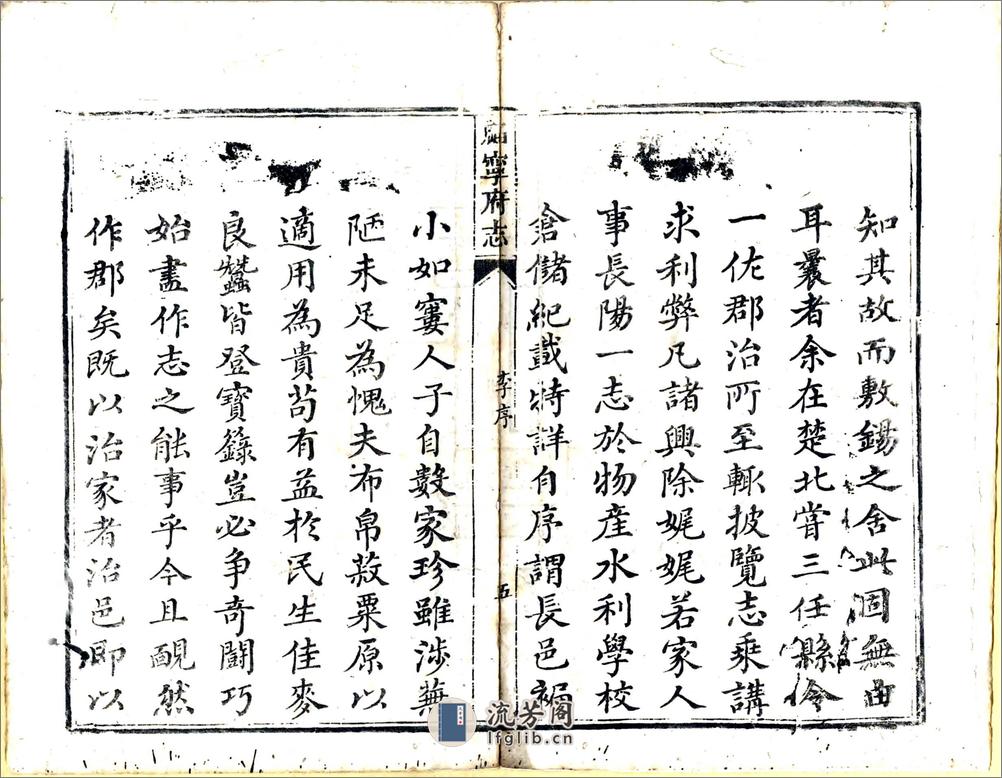 知其故而敷錫之舍此固無由
耳曩者余在楚北嘗三任縣令
一佐郡治所至輒披覽志乘講
求利弊凡諸興除娓娓若家人
事長陽一志於物產水利學校
倉儲紀識特詳自序謂長邑褊
寧府志
李序
五
小如窶人子自數家珍雖涉蕪
陋未足為愧夫布帛菽粟原以
適用為貴苟有益於民生佳麥
良蠶皆登寶籙豈必争奇鬭巧
始盡作志之能事乎今且靦然
作郡矣既以治家者治邑即以
流芳阁
lfglib.cn